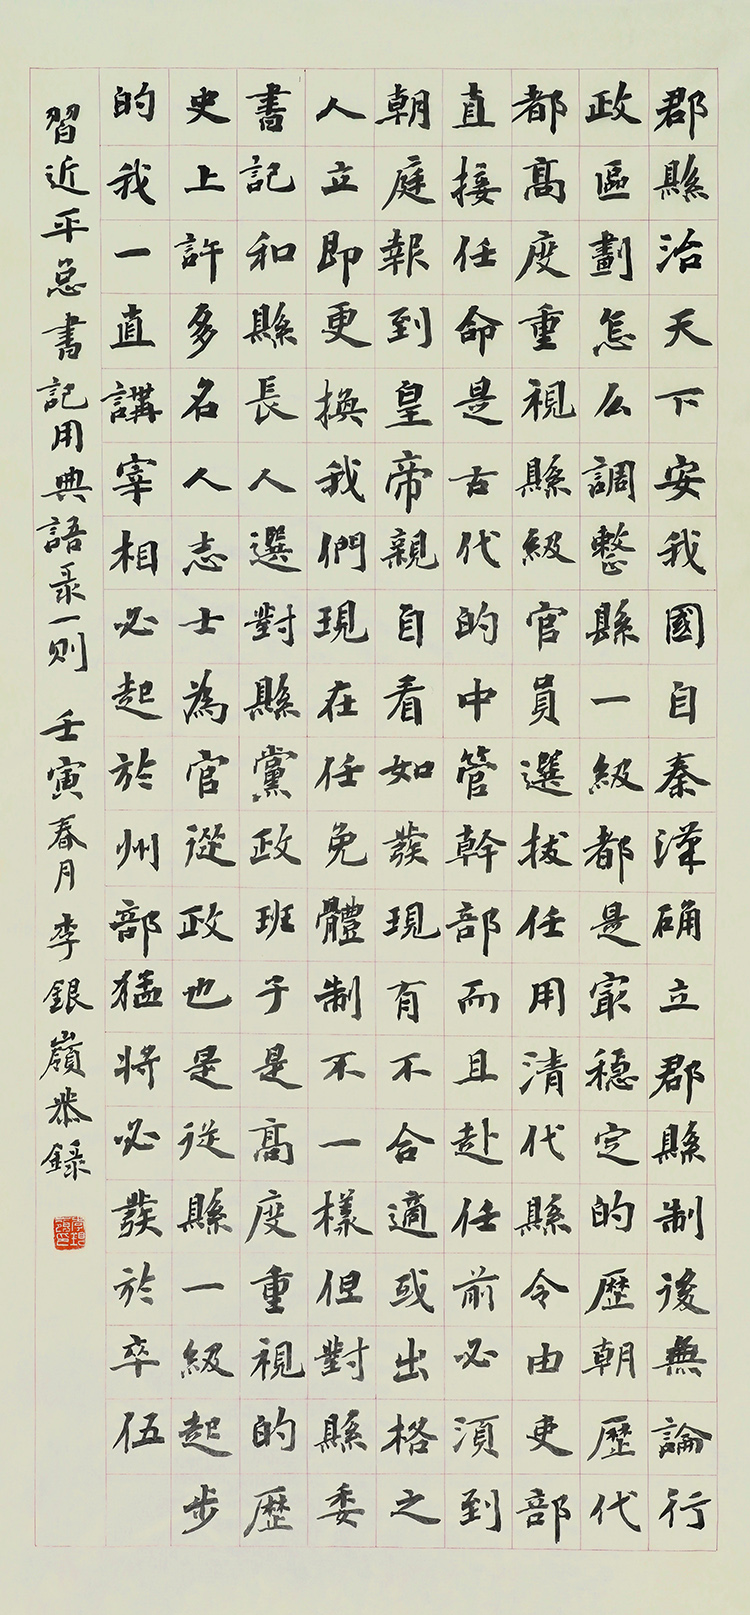 郡縣治天下安我國自秦漢確立郡縣制後無論行
政區劃怎么調整縣一級都是最穩定的歷朝歷代
都高度重視縣級官員選拔任用清代縣令由吏部
直接任命是古代的中管幹部而且赴任前必須到
朝庭報到皇帝親自看如發現有不合適或出格之
人立即更換我們現在任免體制不一樣但對縣委
書記和縣長人選對縣黨政班子是高度重視的歷
史上許多名人志士為官從政也是從縣一級起步
的我一直講宰相必起於州部猛將必發於卒伍
習近平总書記用典語录一则 壬寅春月李銀嶺恭錄